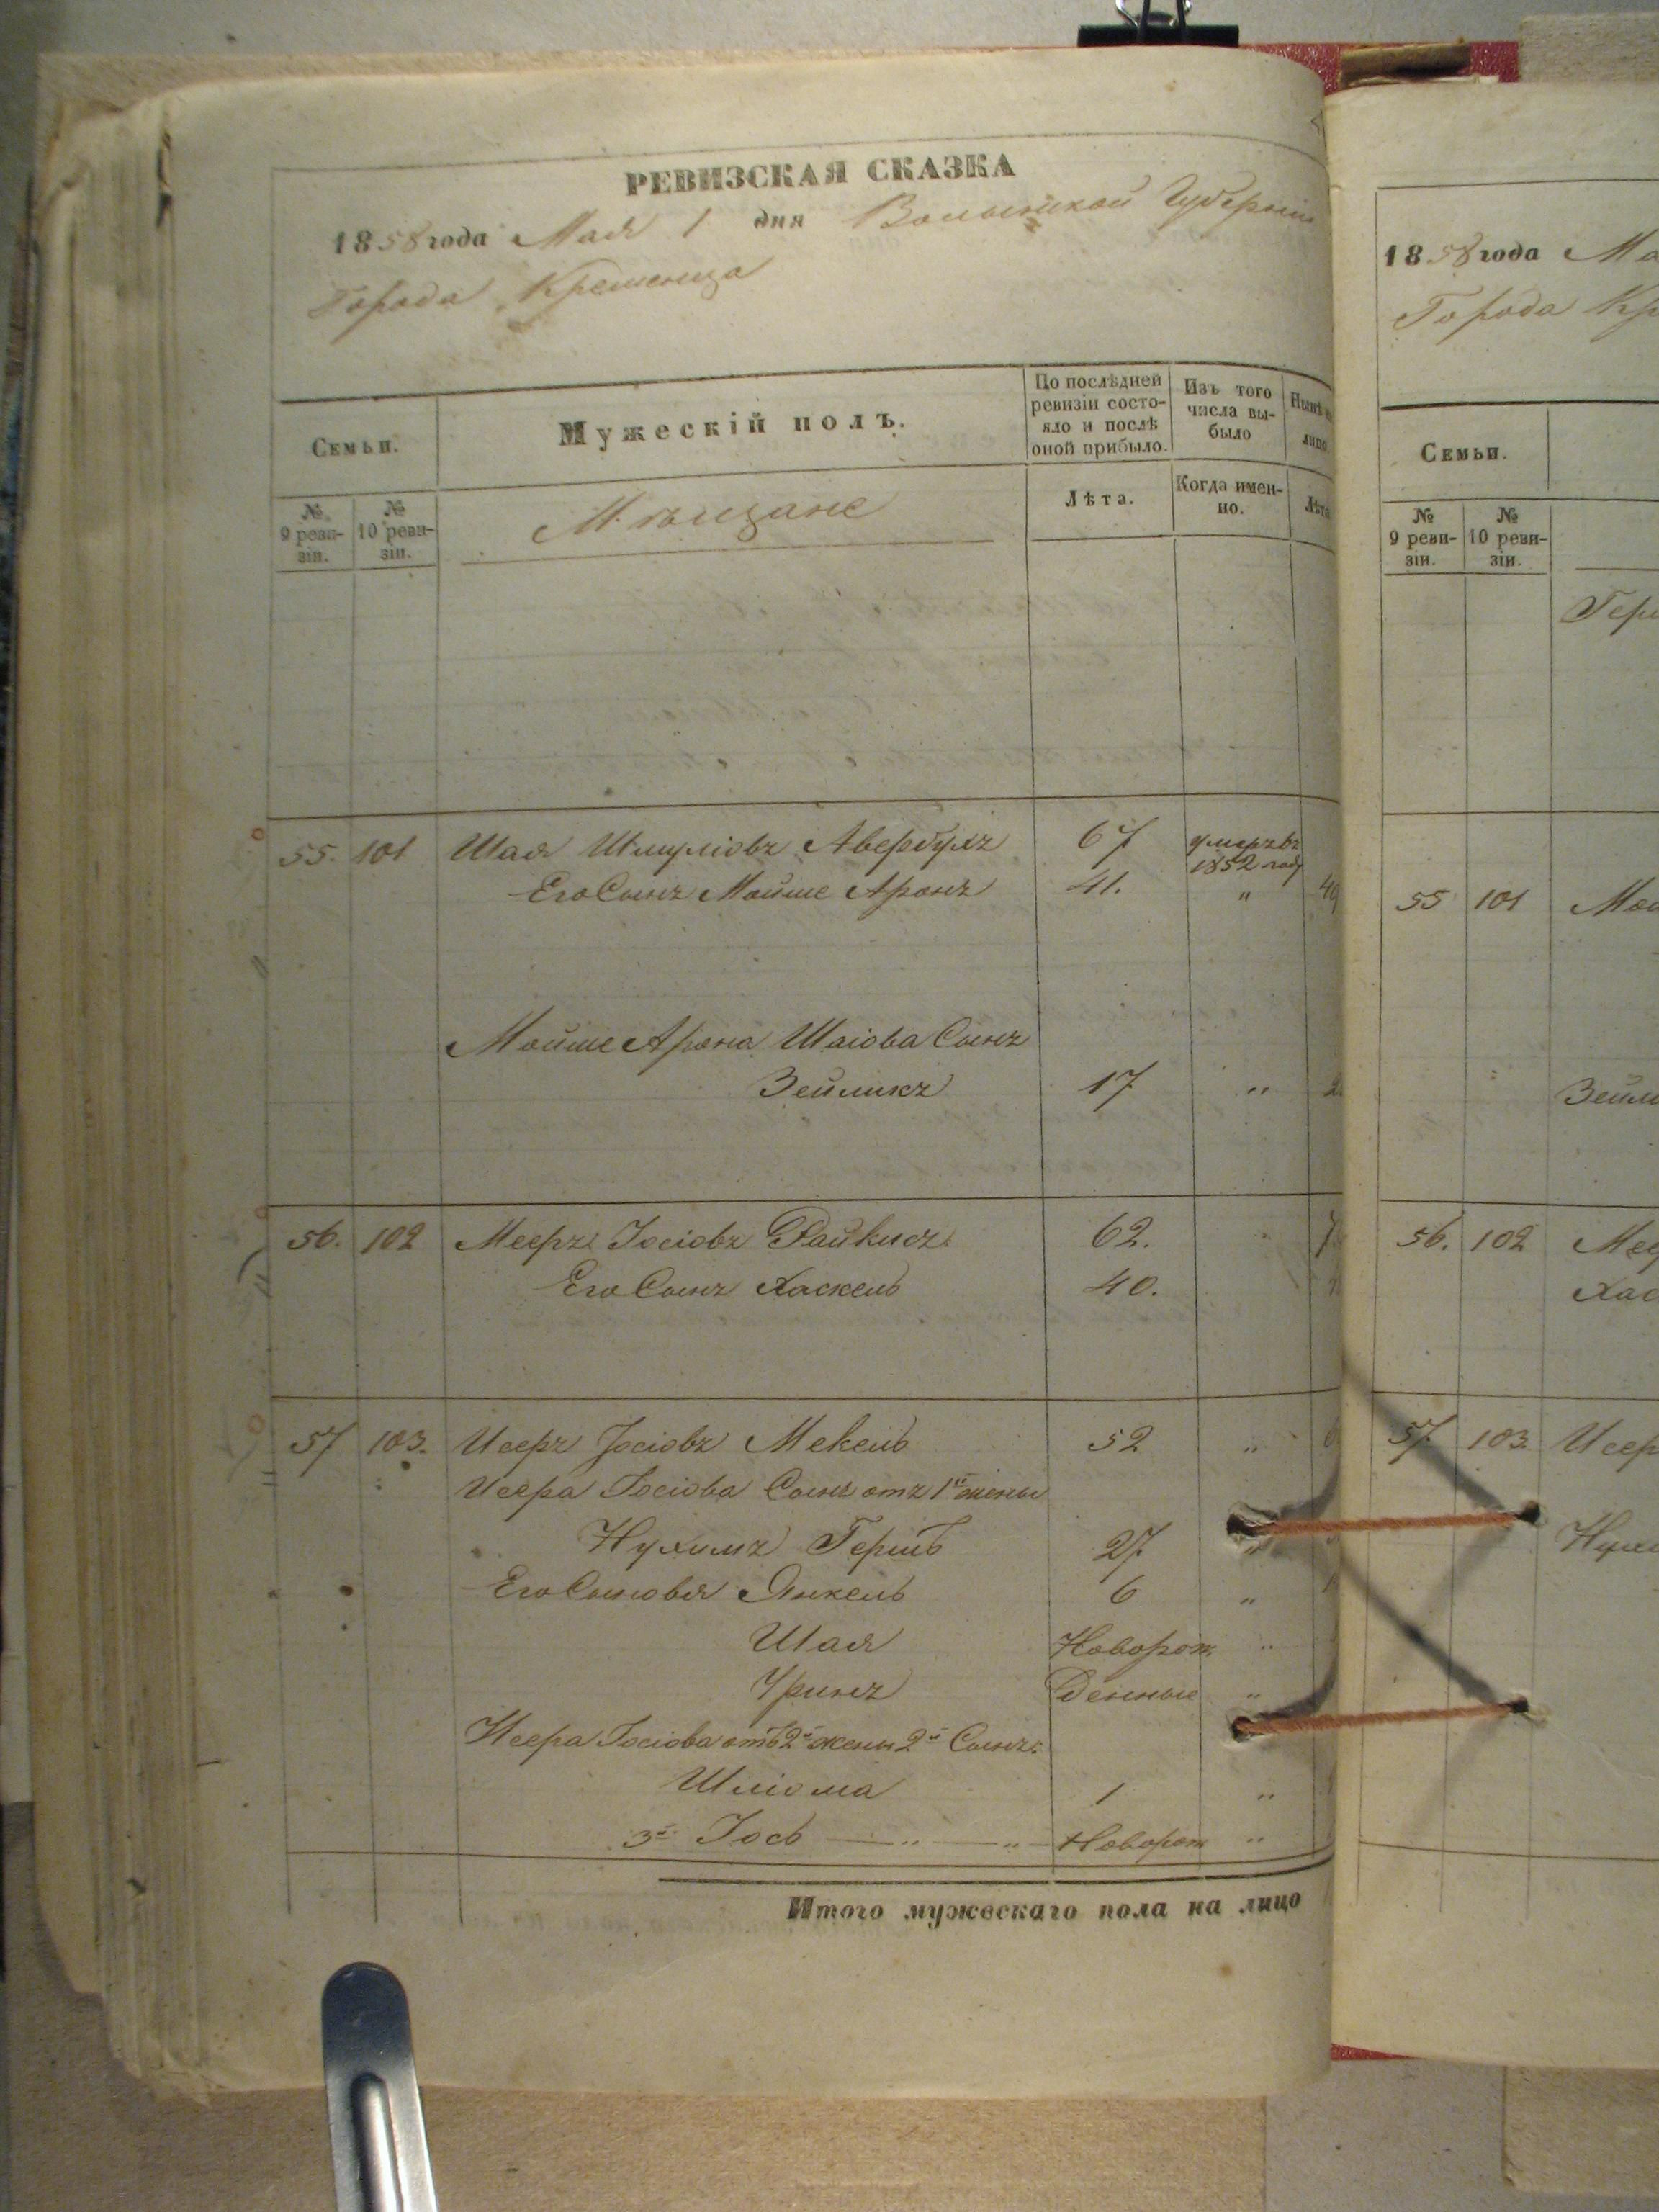 РЕВИЗСКАЯ СКАЗКА
1858 года Мая 1 дня Волынской Губерніи
Города Кременца
Семьи.
Мужескій полъ.
По послѣдней ревизіи состо-
яло и послѣ
оной прибыло.
Изъ того
числа вы-
было
Нынѣ
лицо
№
9 реви-
зіи.
№
10 реви-
зіи.
Мѣщане
Лѣта.
Когда имен-
но.
Лѣта
55. 101 Шая Шмуліовъ Авербухъ 67 умеръ въ
1852 году
Его Сынъ Мойше Аронъ 41. "
Мойше Арона Шаіова Сынъ
Зейликъ 17 "
56. 102 Мееръ Іосіовъ Райкисъ 62. "
Его Сынъ Хаскель 40.
57 103. Исеръ Іосіовъ Мекель 52 "
Исера Іосіова Сынъ отъ 1й жены
Нухимъ Гершъ 27 "
Его Сыновья Янкель 6 "
Шая Новорож "
Уринъ денные "
Исера Іосіова отъ 2й жены 2й Сынъ
Шліома 1 "
3й Іось — " — " — Новорож "
Итого мужескаго пола на лицо
1858 года
Города
Семьи.
№
9 реви-
зіи.
№
10 реви-
зіи.
55 101
56. 102
57. 103.